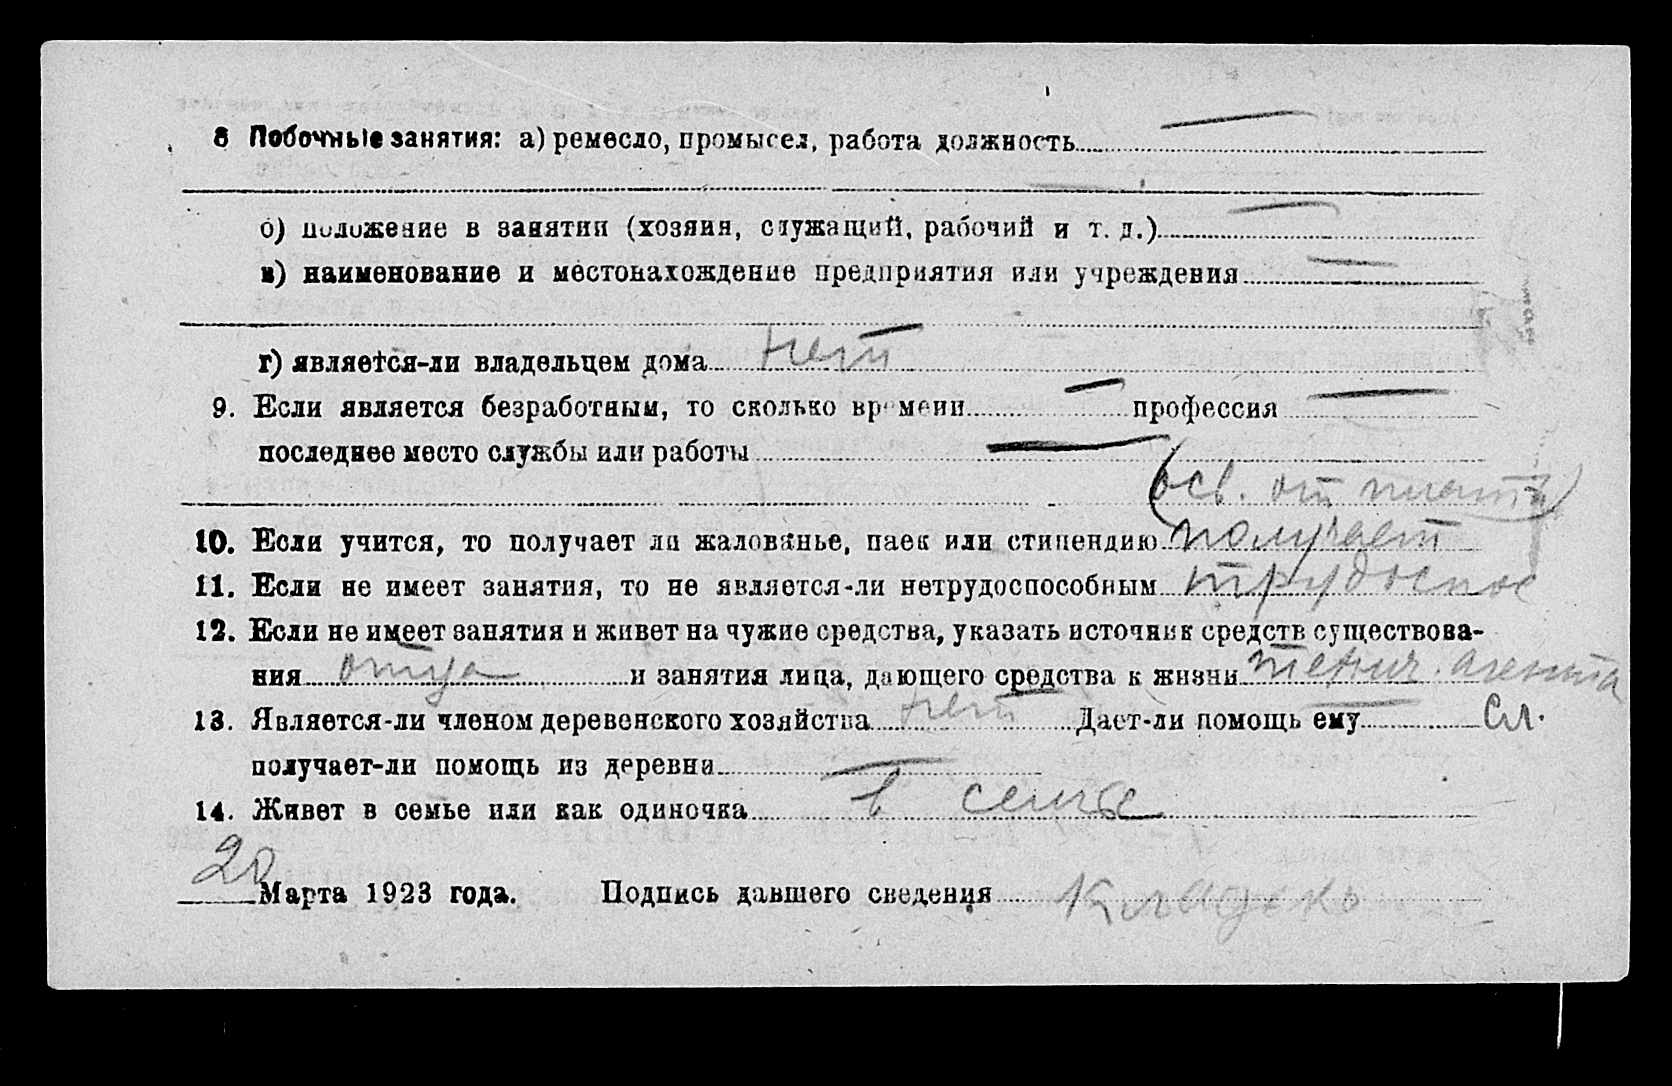 8 Побочные занятия: а) ремесло, промысел, работа должность —
б) положение в занятии (хозяин, служащий, рабочий и т. д.) —
в) наименование и местонахождение предприятия или учреждения —
г) является-ли владельцем дома нет
9. Если является безработным, то сколько времени — профессия —
последнее место службы или работы —
(осв. от платы)
10. Если учится, то получает ли жалованье, паек или стипендию получает
11. Если не имеет занятия, то не является-ли нетрудоспособным трудоспос
12. Если не имеет занятия и живет на чужие средства, указать источник средств существова-
ния отца и занятия лица, дающего средства к жизни технич. агента
13. Является-ли членом деревенского хозяйства нет Дает-ли помощь ему — Сл.
получает-ли помощь из деревни —
14. Живет в семье или как одиночка в семье
20 Марта 1923 года. Подпись давшего сведения